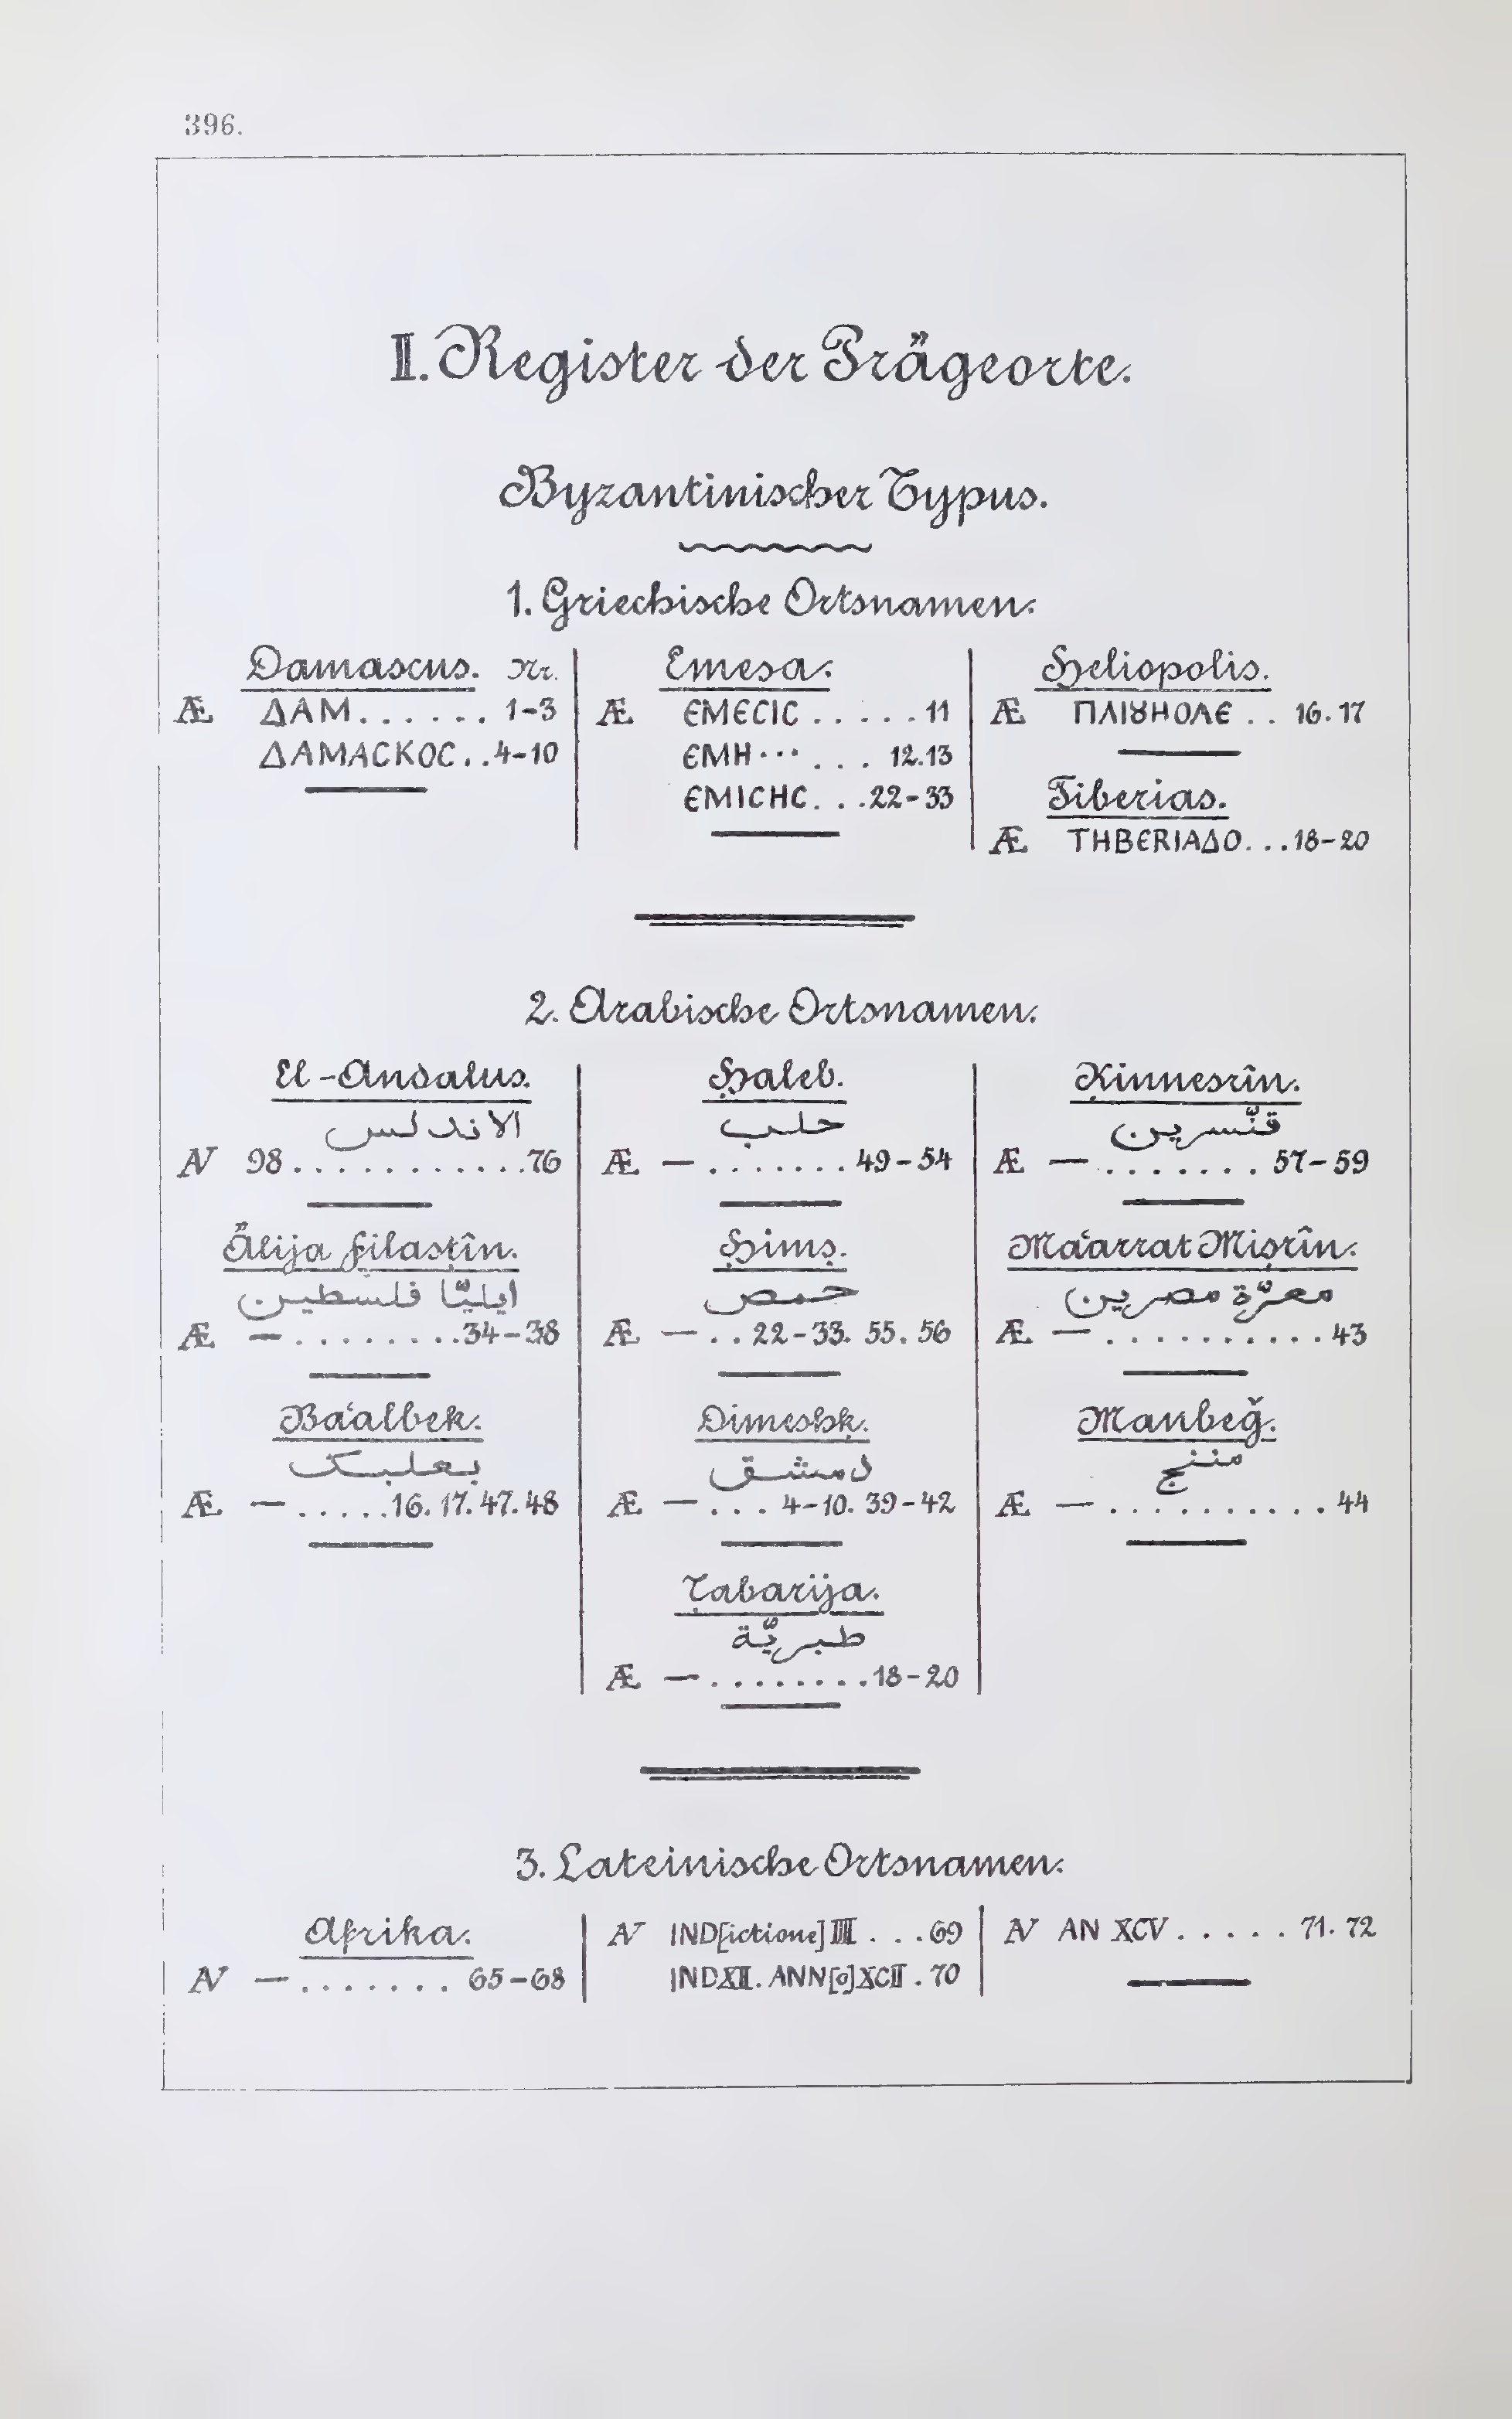 396.
II. Register der Prägeorte.
Byzantinischer Typus.
1. Griechische Ortsnamen.
Damascus. Nr.
Æ ΔΑΜ...... 1-3
ΔΑΜΑCΚΟC..4-10
Emesa.
Æ ЄMЄCIC.....11
ЄMH··· ... 12.13
ЄMICHC...22-33
Heliopolis.
Æ ΠΛΙȣHOΛЄ .. 16.17
Tiberias.
Æ THBЄRIAΔO...18-20
2. Arabische Ortsnamen.
El-Andalus.
الاندلس
AV 98............76
Älija Filasṭîn.
ايليّا فلسطين
Æ —.........34-38
Ba'albek.
بعلبک
Æ —.....16.17.47.48
Ḥaleb.
حلب
Æ —.......49-54
Ḥimṣ.
حمص
Æ —..22-33.55.56
Dimeshḳ.
دمشق
Æ —... 4-10. 39-42
Ṭabarija.
طبريّة
Æ —........18-20
Ḳinnesrîn.
قنّسرين
Æ —....... 57-59
Ma'arrat Miṣrîn.
معرّة مصرين
Æ —..........43
Manbeǧ.
منبج
Æ —.......... 44
3. Lateinische Ortsnamen.
Afrika.
AV —....... 65-68
AV IND[ictione]IIII...69
INDXII. ANN[o]XCII.70
AV AN XCV..... 71.72